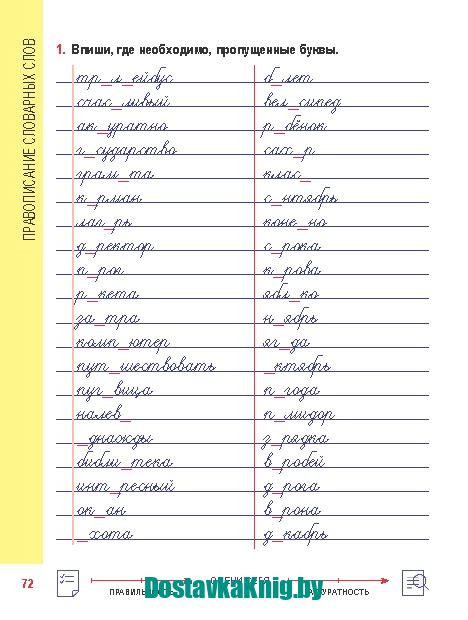 ПРАВОПИСАНИЕ СЛОВАРНЫХ СЛОВ
1. Впиши, где необходимо, пропущенные буквы.
тр_л_ейбус
счас_ливый
ак_уратно
г_сударство
грам_та
к_рман
лаг_рь
д_ректор
п_рог
р_кета
за_тра
комп_ютер
пут_шествовать
пуг_вица
налев_
_днажды
библи_тека
инт_ресный
ок_ан
_хота
б_лет
вел_сипед
р_бёнок
сахс_р
клас_
с_нтябрь
коне_но
с_рока
к_рова
ябл_ко
н_ябрь
яг_да
_ктябрь
п_года
п_мидор
з_рядка
в_робей
д_рога
в_рона
д_кабрь
72
DostavkaKnig.by